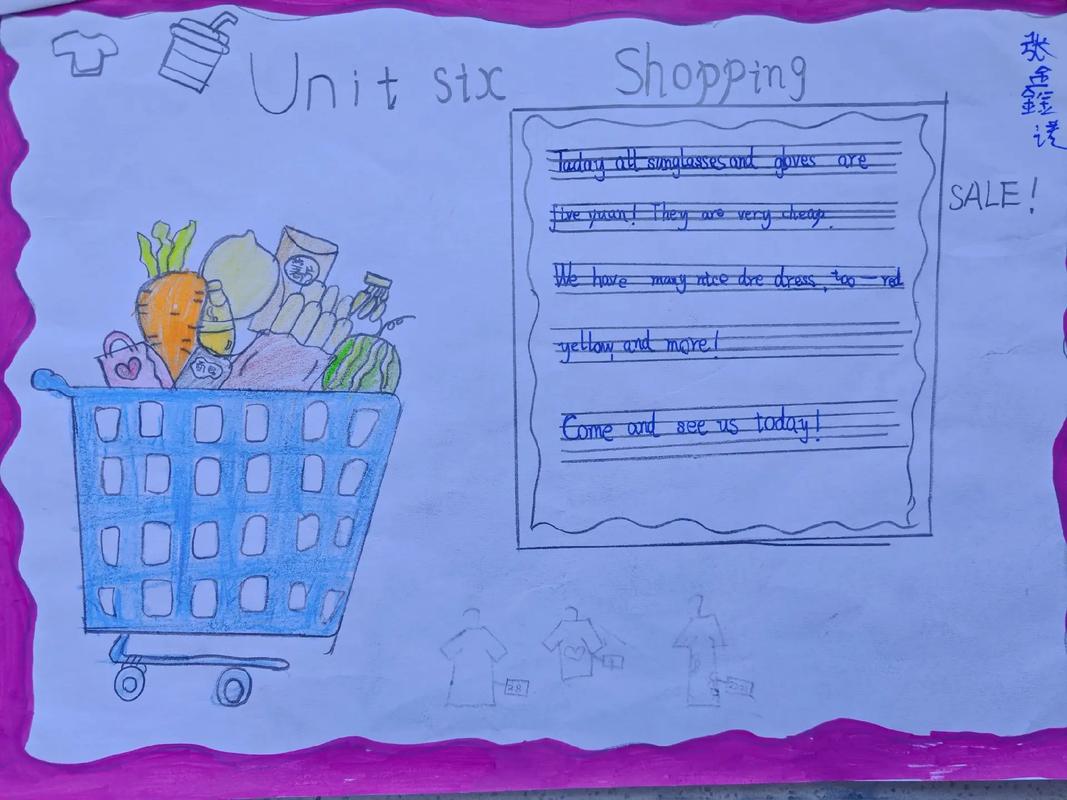 Unit six Shopping
张
鑫
淏
SALE!
Today all sunglasses and gloves are
five yuan! They are very cheap.
We have many nice dre dress, too — red
yellow, and more!
Come and see us today!
28